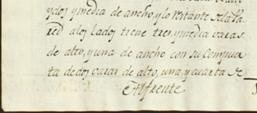 y dos y media de ancho, y lo restante de la Pa
red a los Lados tiene tres y media varas
de alto, y una de ancho con su Compuer
ta de dos varas de alto, una y quarta de
Al frente